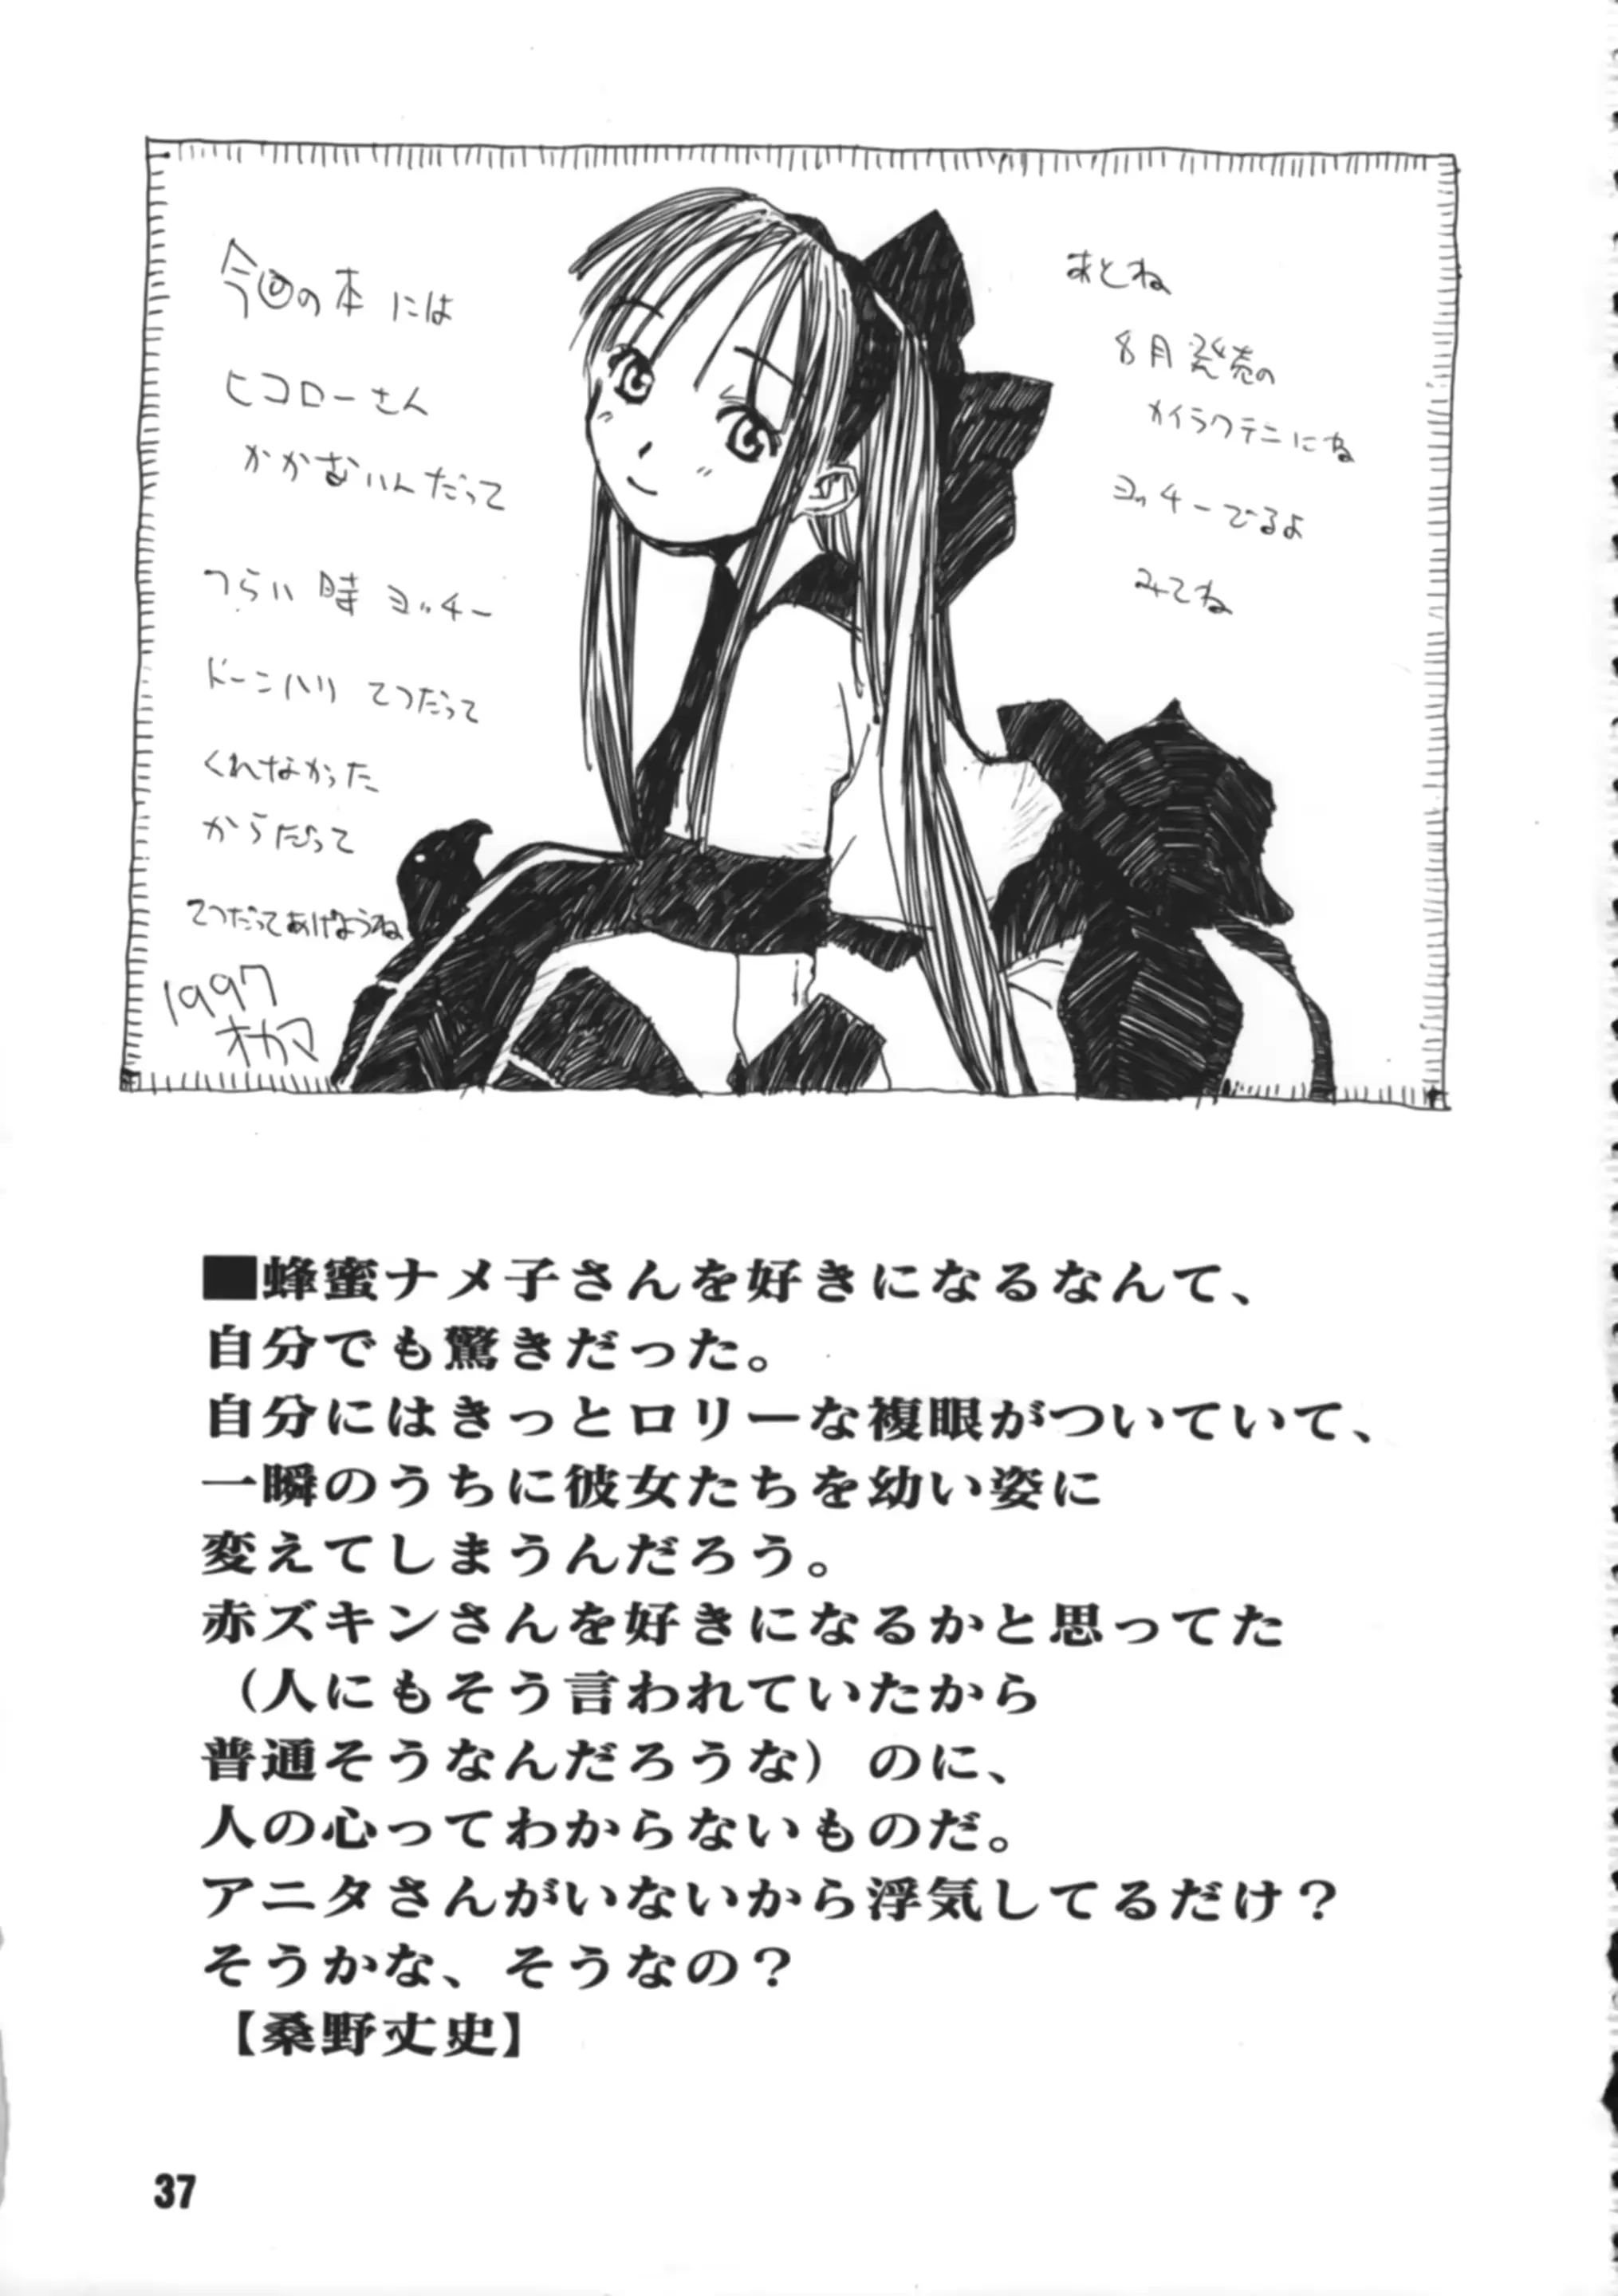 今回の本には
ヒコローさん
かかないんだって
つらい時ヨッチー
てつだって
くれなかった
からだって
てつだってあげようね
1997
オカマ
あとね
8月発売の
カイラクテンにね
ヨッチーでるよ
みてね
■蜂蜜ナメ子さんを好きになるなんて、
自分でも驚きだった。
自分にはきっとロリーな複眼がついていて、
一瞬のうちに彼女たちを幼い姿に
変えてしまうんだろう。
赤ズキンさんを好きになるかと思ってた
（人にもそう言われていたから
普通そうなんだろうな）のに、
人の心ってわからないものだ。
アニタさんがいないから浮気してるだけ？
そうかな、そうなの？
【桑野丈史】
37